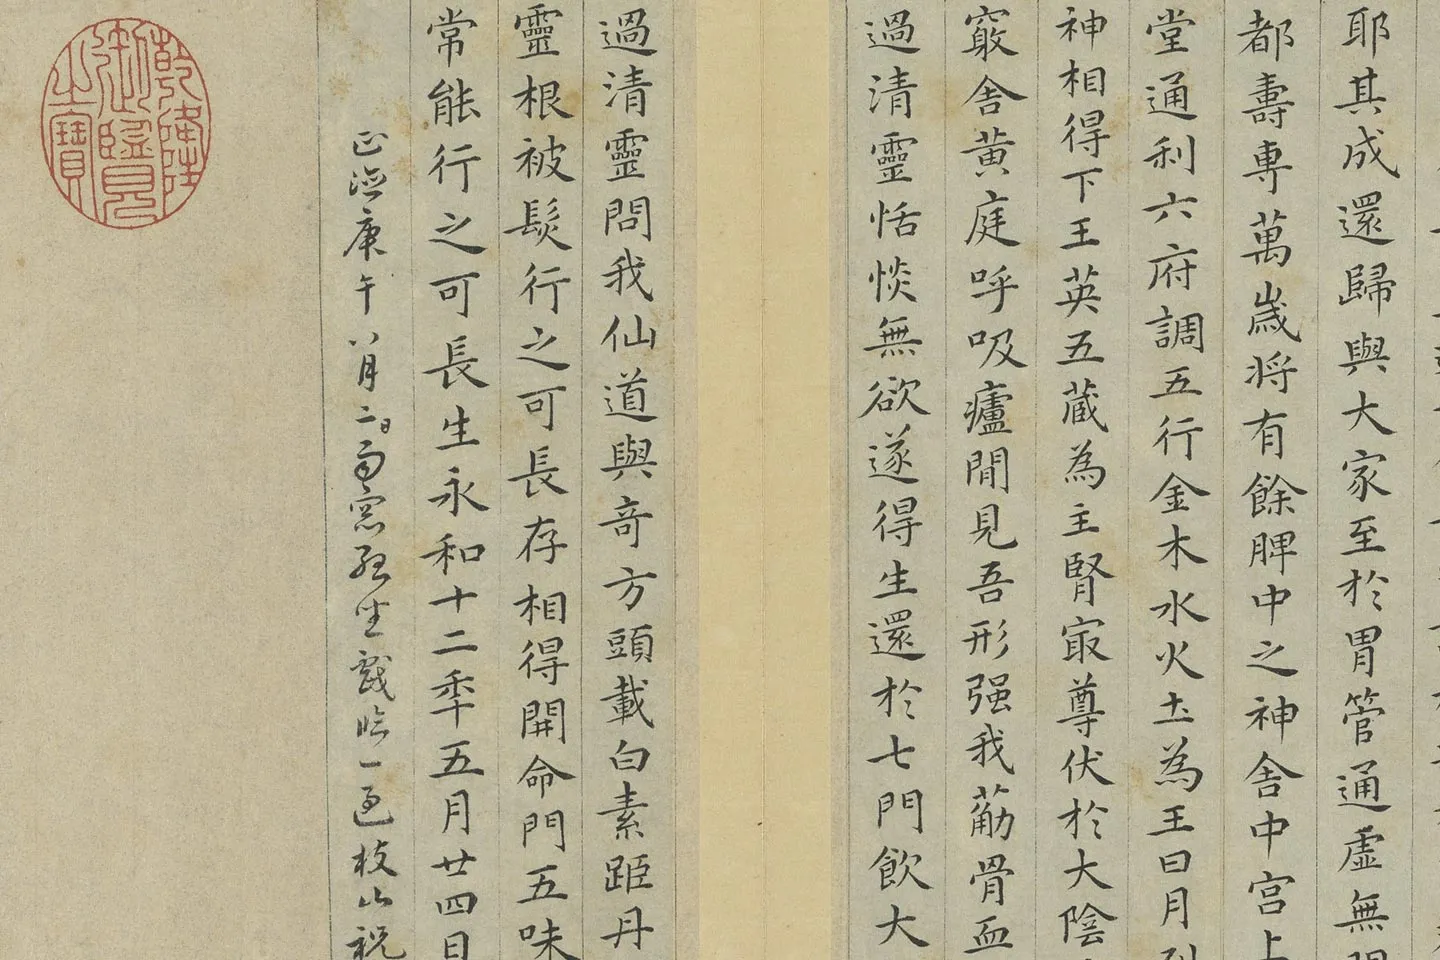 耶其成還歸與大家至於胃管通虛無
都壽專萬歲將有餘脾中之神舍中宮上
堂通利六府調五行金木水火土為王日月列
神相得下王英五藏為主腎㝡尊伏於大陰
竅舍黃庭呼吸廬間見吾形强我筋骨血
過清靈恬惔無欲遂得生還於七門飲大
過清靈問我仙道與奇方頭載白素距丹
靈根被髮行之可長存相得開命門五味
常能行之可長生永和十二年五月廿四日
正德庚午八月二日雨窓孤坐戲臨一過枝山祝
乾隆御覽之寶